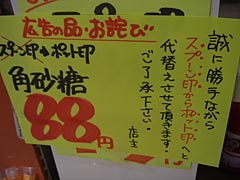 広告の品・お詫び
スプーン印のポット印
角砂糖
88円
誠に勝手ながら
スプーン印からポット印へと
代替えさせて頂きます。
ご了承下さい。
店主